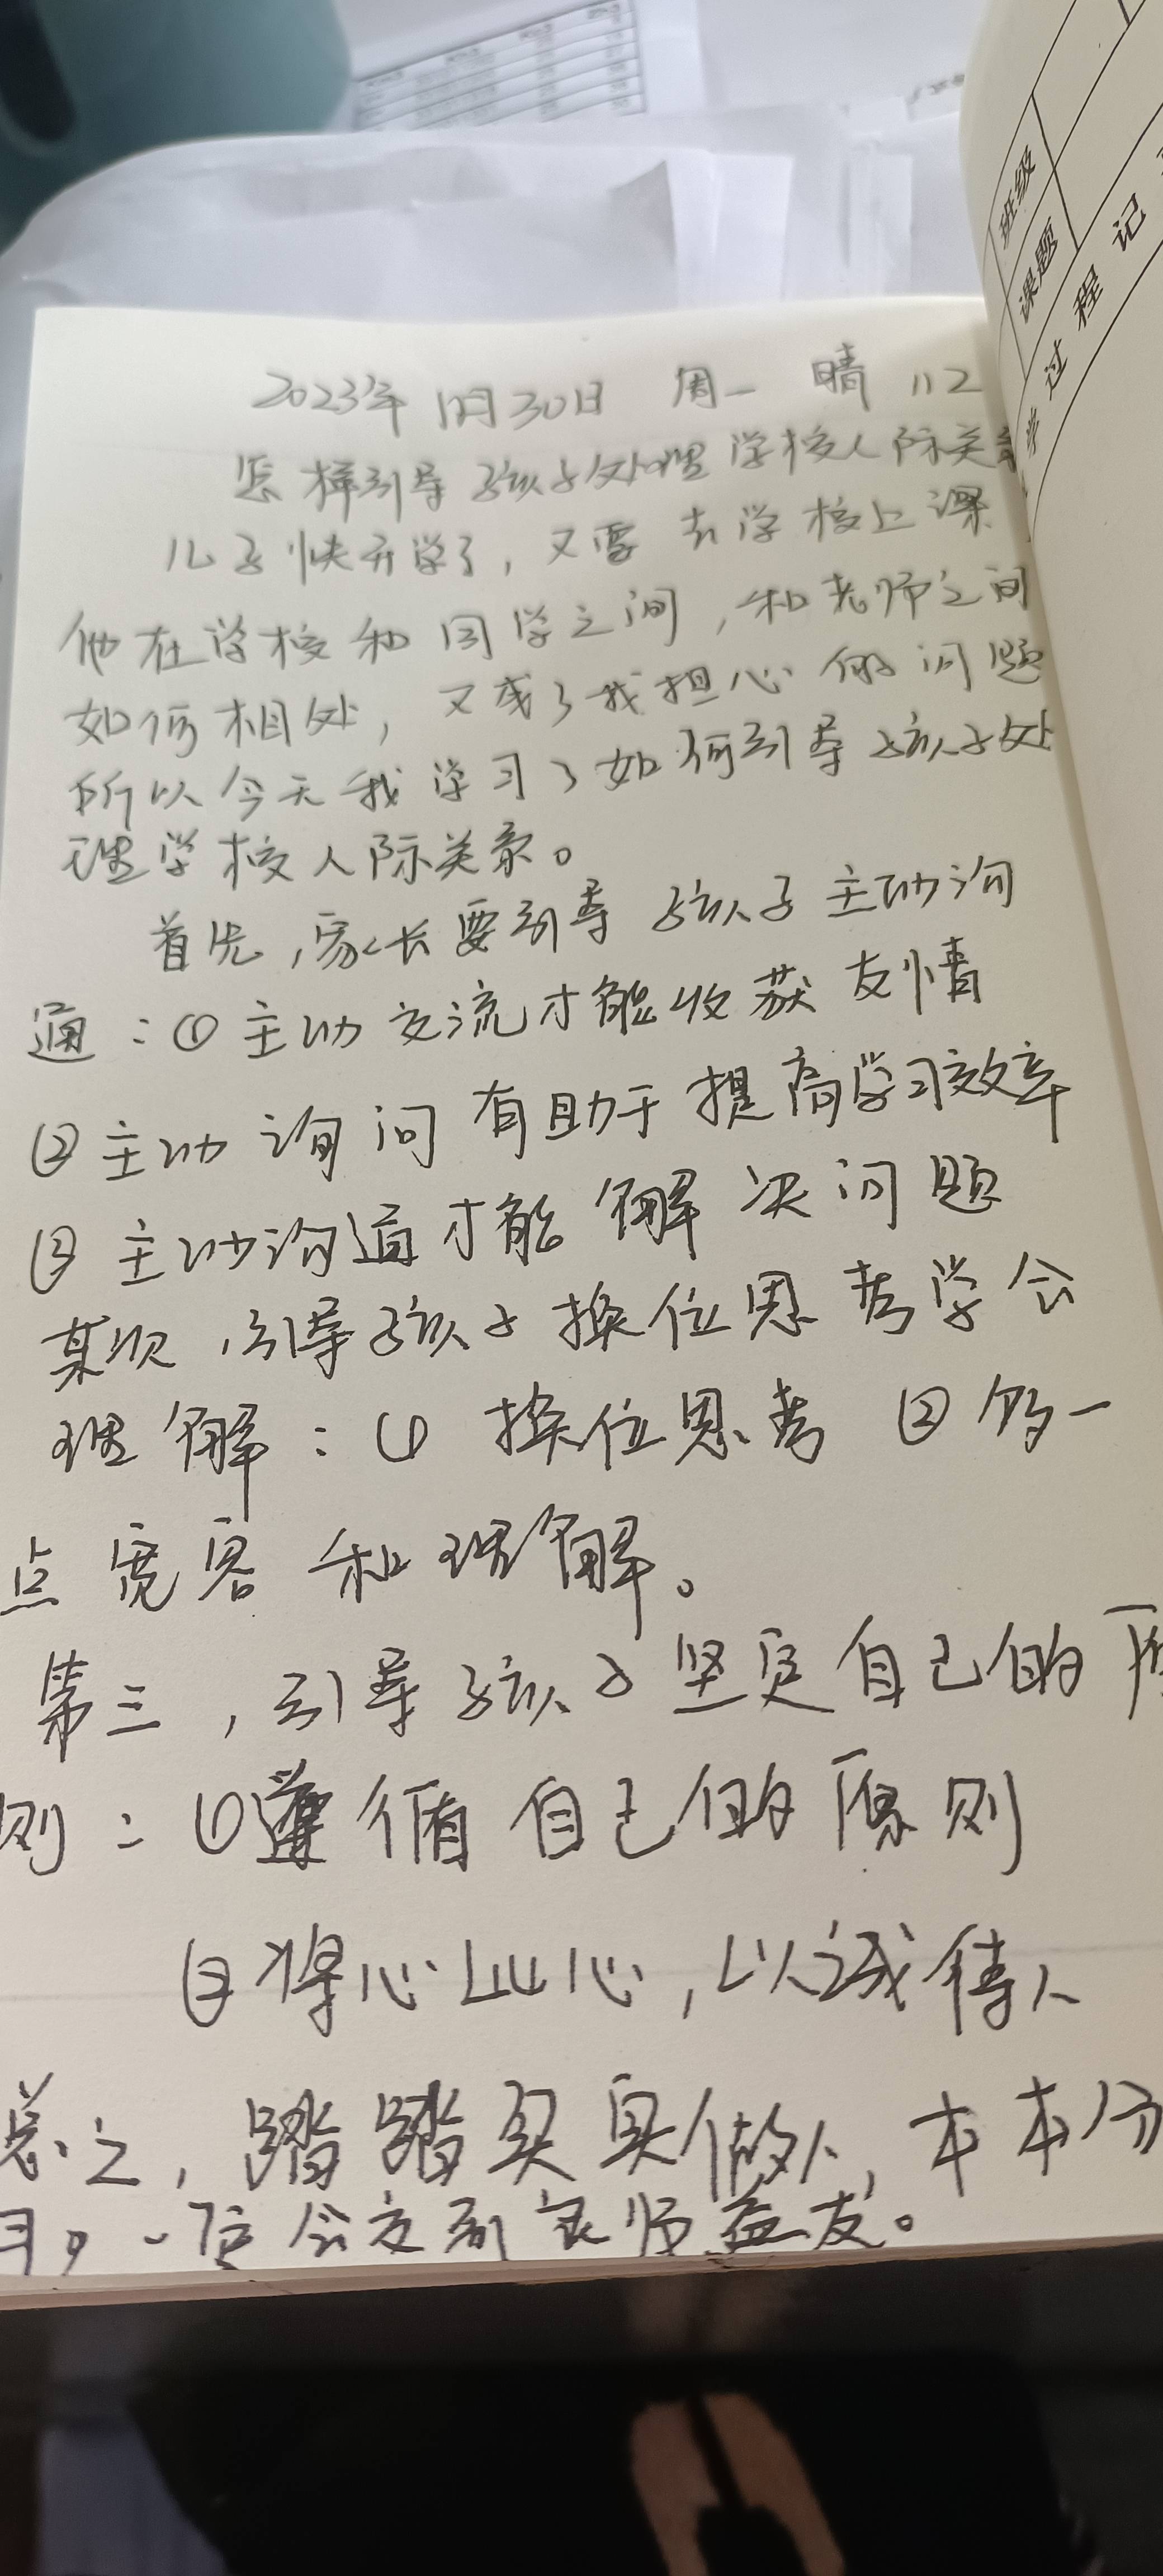 2023年1月30日 周一 晴 112
怎样引导孩子处理学校人际关系
儿子快开学了，又要去学校上课
他在学校和同学之间，和老师之间
如何相处，又成了我担心的问题
所以今天我学习了如何引导孩子处
理学校人际关系。
首先，家长要引导孩子主动沟
通：①主动交流才能收获友情
②主动询问有助于提高学习效率
③主动沟通才能解决问题
其次，引导孩子换位思考学会
理解：①换位思考 ②多一
点宽容和理解。
第三，引导孩子坚定自己的原
则：①遵循自己的原则
②将心比心，以诚待人
总之，踏踏实实做人，本本分
习，一定会交到良师益友。
班级
课题
学过程记